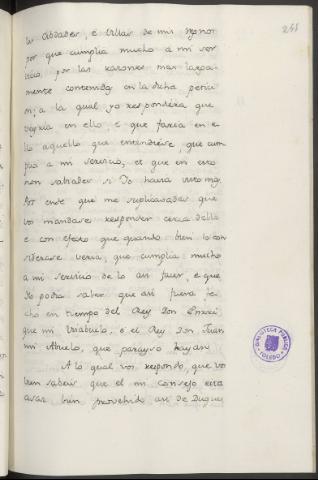 251
las Cibdades, e Villas de mis Regnos
por que cumplia mucho a mi ser
vicio, por las razones mas larga-
mente contenidas en la dicha peticio
n; a la qual yo respondiera que
veyria en ello, e que faria en e
llo aquello que entendiese, que cum
plia a mi servicio, et que en esto
non sabiades si Yo havia visto mas
Por ende que me suplicavades que
vos mandase responder cerca dello
e con efeto que quando bien lo con
siderase veria, que cumplia mucho
a mi servicio de lo asi facer, e que
Yo podia saber que asi fuera fe
cho en tiempo del Rey Don Enrri
que mi Visabuelo, e el Rey Don Juan
mi Abuelo, que parayso hayan
A lo qual vos respondo, que vo
bien sabeis que el mi Consejo esta
asaz bien provehido asi de Duques
BIBLIOTECA PÚBLICA
TOLEDO